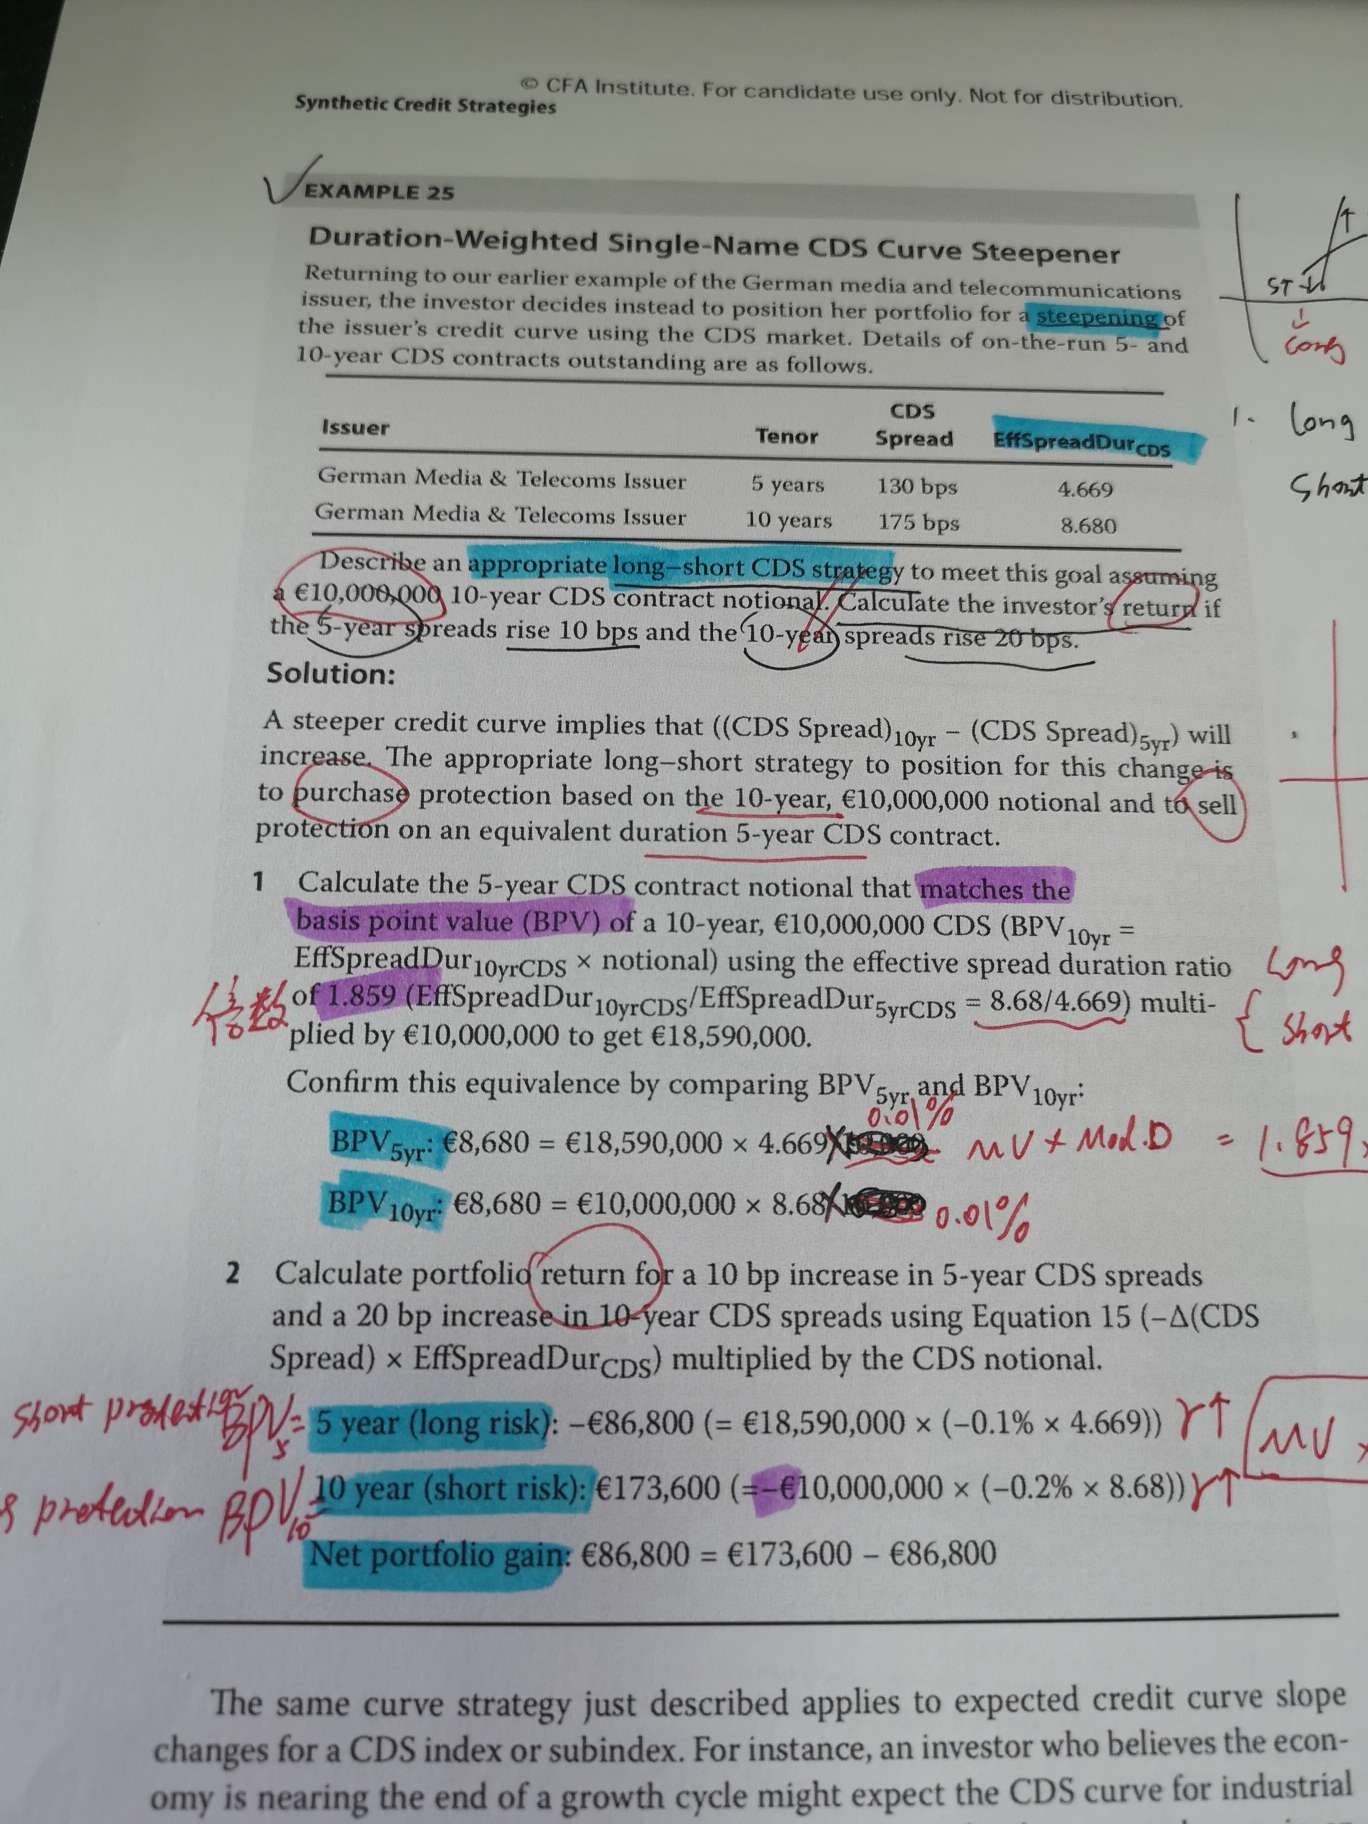 © CFA Institute. For candidate use only. Not for distribution.
Synthetic Credit Strategies
EXAMPLE 25
Duration-Weighted Single-Name CDS Curve Steepener
Returning to our earlier example of the German media and telecommunications
issuer, the investor decides instead to position her portfolio for a steepening of
the issuer's credit curve using the CDS market. Details of on-the-run 5- and
10-year CDS contracts outstanding are as follows.
ST
Long
Issuer Tenor CDS Spread EffSpreadDurCDS
German Media & Telecoms Issuer 5 years 130 bps 4.669
German Media & Telecoms Issuer 10 years 175 bps 8.680
1. Long
Short
Describe an appropriate long–short CDS strategy to meet this goal assuming
a €10,000,000 10-year CDS contract notional. Calculate the investor's return if
the 5-year spreads rise 10 bps and the 10-year spreads rise 20 bps.
Solution:
A steeper credit curve implies that ((CDS Spread)10yr − (CDS Spread)5yr) will
increase. The appropriate long–short strategy to position for this change is
to purchase protection based on the 10-year, €10,000,000 notional and to sell
protection on an equivalent duration 5-year CDS contract.
1 Calculate the 5-year CDS contract notional that matches the
basis point value (BPV) of a 10-year, €10,000,000 CDS (BPV10yr =
EffSpreadDur10yrCDS × notional) using the effective spread duration ratio
of 1.859 (EffSpreadDur10yrCDS/EffSpreadDur5yrCDS = 8.68/4.669) multi-
plied by €10,000,000 to get €18,590,000.
倍数
Long
Short
Confirm this equivalence by comparing BPV5yr and BPV10yr:
0.01%
BPV5yr: €8,680 = €18,590,000 × 4.669 × MV × Mod.D = 1.859
BPV10yr: €8,680 = €10,000,000 × 8.68 × 0.01%
2 Calculate portfolio return for a 10 bp increase in 5-year CDS spreads
and a 20 bp increase in 10-year CDS spreads using Equation 15 (−Δ(CDS
Spread) × EffSpreadDurCDS) multiplied by the CDS notional.
short protection BPV5 = 5 year (long risk): −€86,800 (= €18,590,000 × (−0.1% × 4.669)) r↑ MV ×
protection BPV10 = 10 year (short risk): €173,600 (=−€10,000,000 × (−0.2% × 8.68)) r↑
Net portfolio gain: €86,800 = €173,600 − €86,800
The same curve strategy just described applies to expected credit curve slope
changes for a CDS index or subindex. For instance, an investor who believes the econ-
omy is nearing the end of a growth cycle might expect the CDS curve for industrial